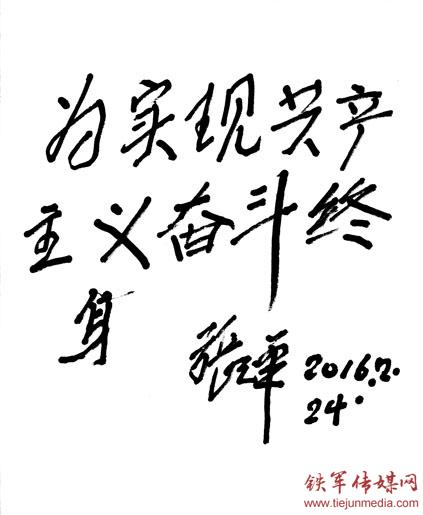 为实现共产
主义奋斗终
身
张军 2016.2.
24.
铁军传媒网
www.tiejunmedia.com